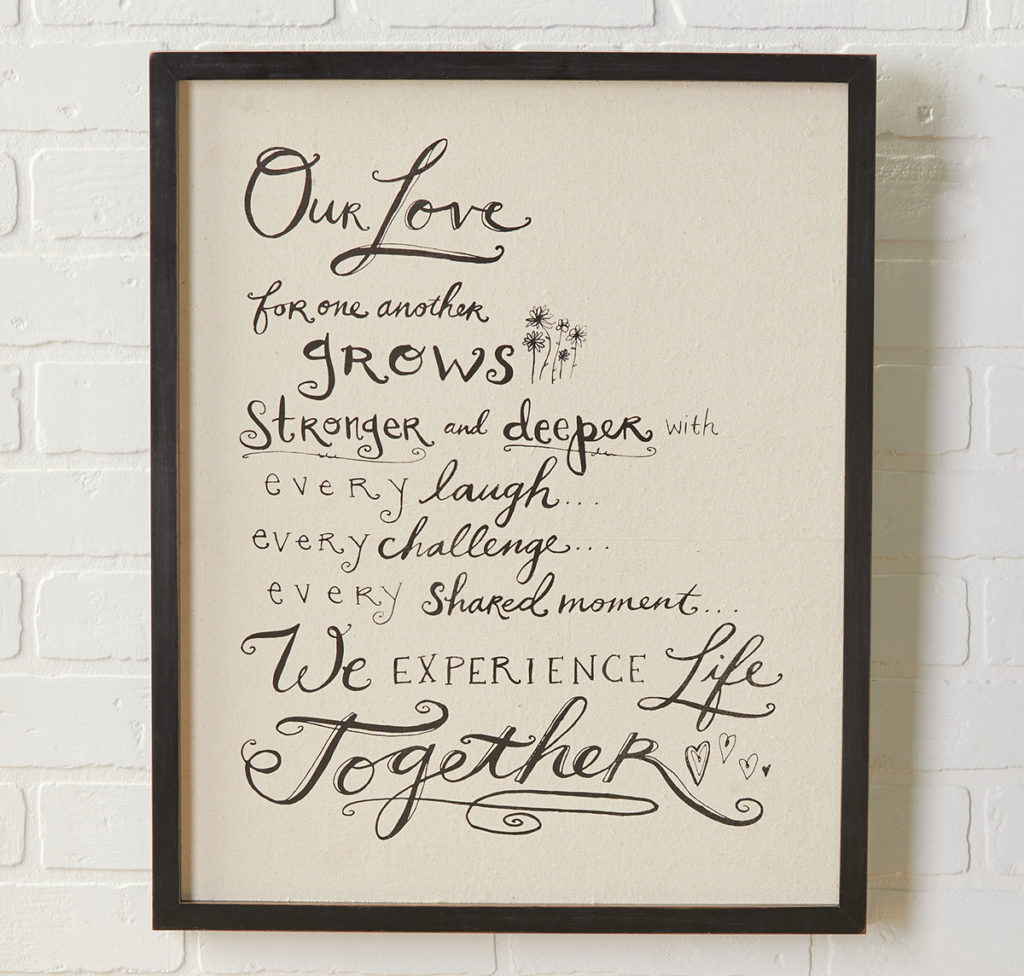 Our Love
for one another
grows
Stronger and deeper with
every laugh...
every challenge...
every shared moment...
We EXPERIENCE Life
Together